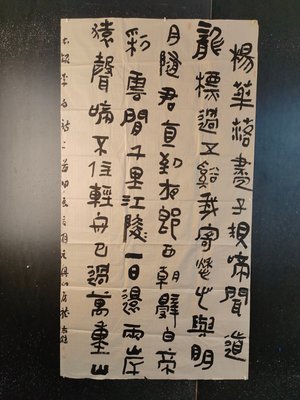 楊華落盡子規啼聞道
龍標過五溪我寄愁心與明
月隨君直到夜郎西朝辭白帝
彩雲間千里江陵一日還兩岸
猿聲啼不住輕舟已過萬重山
李白詩二首